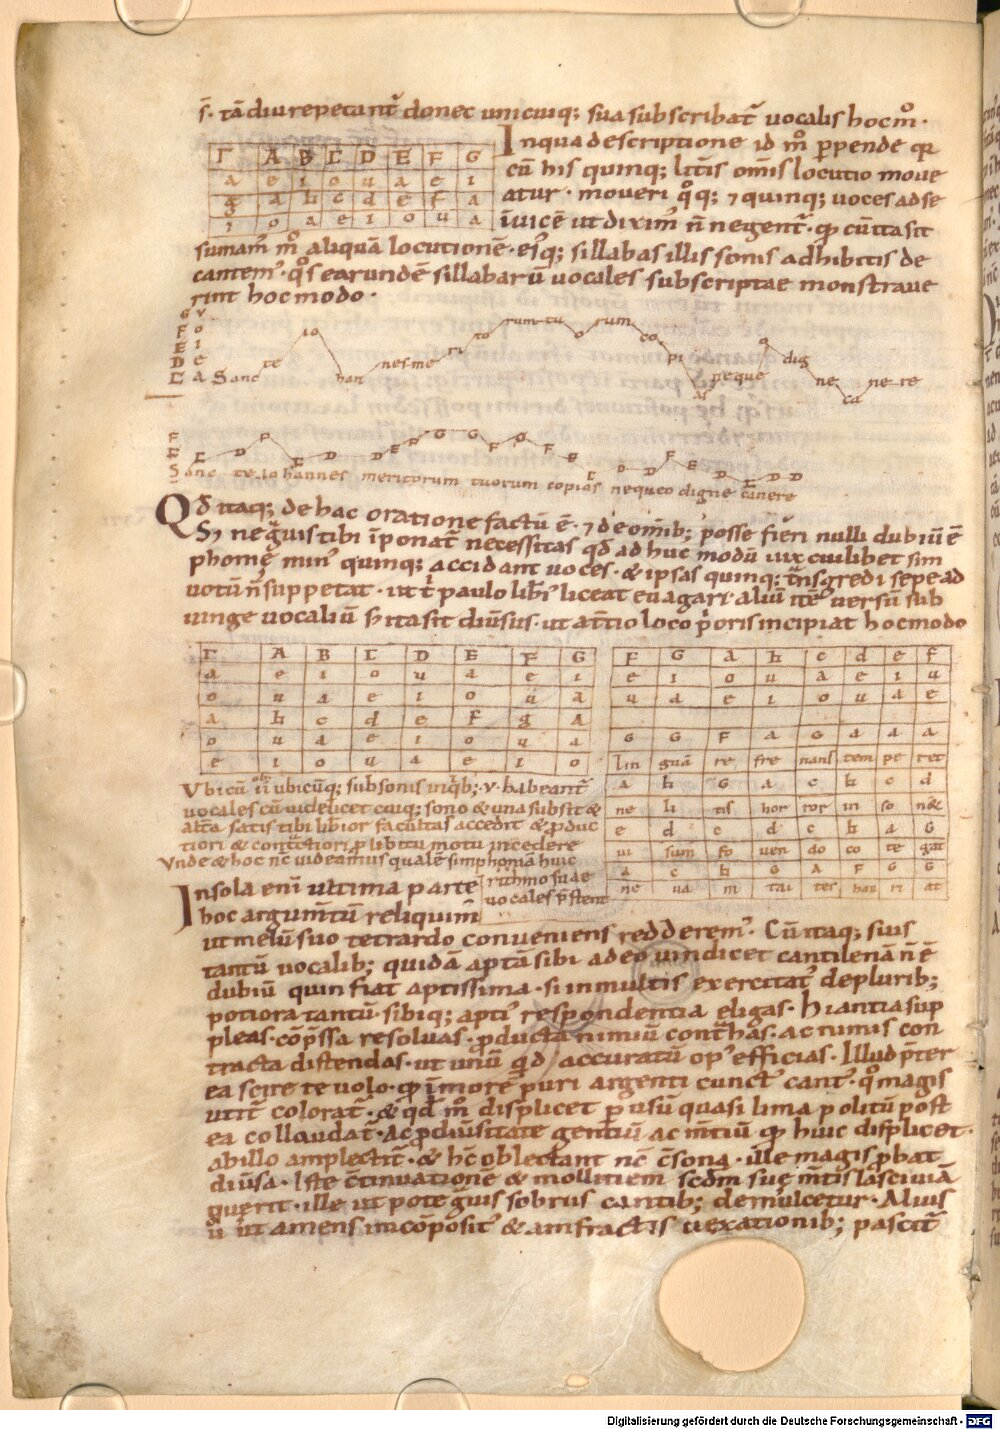 s̄. tā diu repetant᷑ donec unicuiq; sua subscribat᷑ uocalis hoc m̊.
In qua descriptione id m̊ ꝑpende qr
cū his quinq; litt̄is om̄is locutio moue
atur. moueri qͦq; ⁊ quinq; uoces ad se
Γ A B C D E F G
a e i o u a e i
g a h c d e f a
i o a e i o u a
īuicē ut dixim᷒ n̄ negent᷑. qđ cū ita sit
sumam᷒ m̊ aliquā locutionē. eiꝰq; sillabas illis sonis adhibitis de
cantem᷒. qͦs earundē sillabarū uocales subscriptae monstraue
rint hoc modo.
G V
F o
E i
D e
C a
Sanc te io han nes me ri to rum tu o rum co pi as neque o dig ne ca ne re
F
E
C D F C D D E F G G F G F E C D D F E D C D D
Sanc te Iohannes meritorum tuorum copias nequeo digne canere
Qđ itaq; de hac oratione factū ē. ⁊ de omīb; posse fieri nulli dubiū ē
Sȝ ne g̊uis tibi īponat᷑ necessitas qđ adhuc modū uix cuilibet sim
phonię min᷒ quinq; accidant uoces. & ipsas quinq; tͣnsgredi sepe ad
uotū n̄ suppetat. ut t̊ paulo libi᷒ liceat euagari. aliū itē uersū sub
iunge uocaliū s̄ ita sit diūsus. ut at̄tio loco p̄oris incipiat hoc modo
Γ A B C D E F G
a e i o u a e i
o u a e i o u a
a h c d e F g A
o u a e i o u a
e i o u a e i o
F G a h c d e f
e i o u a e i u
u a e i o u a e
G G F A G a a a
Lin guā re fre nans tem pe ret
a h G a c h c d
ne li tis hor ror in so n&
e d c d c h a G
ui sum fo uen do co te gat
a c h G A F G G
ne ua ni ta tes hau ri at
uocales cū uidelicet cuiq; sono & una subsit &
alt̄a satis tibi libi᷒or facultas accedit & ꝓduc
tiori & cont̄ctiori ꝓ libitu motu incedere
Vnde & hoc nc̄ uideamus qualē simphoniā huic
rithmo suae
uocales p̄stent
In sola eni ultima parte
hoc argum̄tū reliquim᷒
ut melū suo tetrardo conueniens redderem᷒. Cū itaq; siuis
tantū uocalib; quidā aptā sibi adeo uindicet cantilenā n̄ ē
dubiū quin fiat aptissima. si in multis exercitat᷒ de plurib;
potiora tantū sibiq; apti᷒ respondentia eligas. hiantia sup
pleas. cōp̄ssa resoluas. ꝓducta nimiū cont̄has. ac nimis con
tracta distendas. ut unū qđ accuratū op᷒ efficias. Illud p̄ter
ea scire te uolo. qđ īmore puri argenti cunct᷒ cant᷒. qͦ magis
utit᷑ colorat᷑. & qđ m̊ displicet ꝑ usū quasi lima politū post
ea collaudat᷑. Ac ꝓ diūsitate gentiū ac m̄tiū qđ huic displicet.
ab illo amplectit᷑. & hc̄ oblectant nc̄ c̄sona. ille magis ꝓbat
diūsa. Iste c̄tinuationē & mollitiem sc̄dm suę m̄tis lasciuiā
querit. ille ut pote g̊uis sobrus cantib; demulcetur. Alius
ū ut amens in cōposit᷒ & amfractis uexationib; pascit᷑
Digitalisierung gefördert durch die Deutsche Forschungsgemeinschaft - DFG